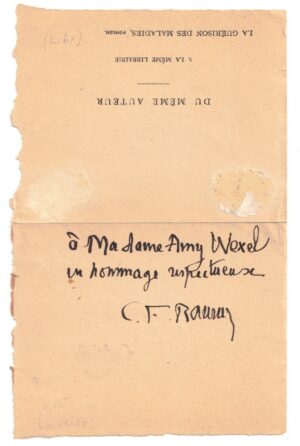 DU MÊME AUTEUR
A LA MÊME LIBRAIRIE
LA GUÉRISON DES MALADIES, roman.
(1917)
à Madame Amy Wexel
en hommage respectueuse
C. F. Ramuz